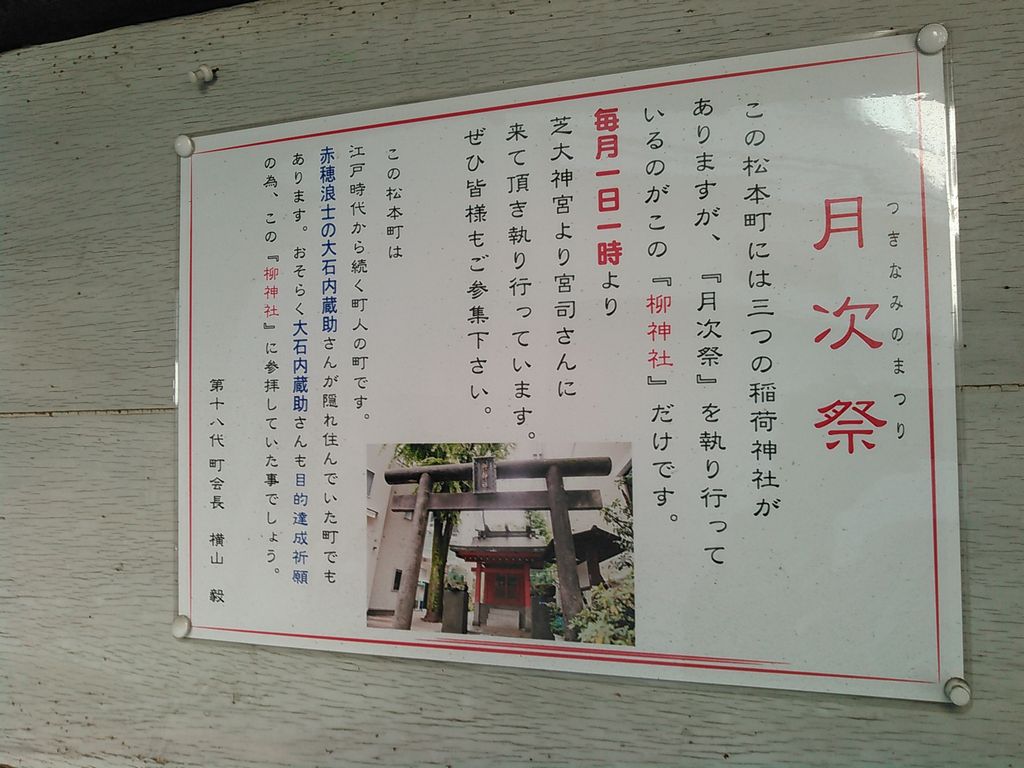 つきなみのまつり
月次祭
この松本町には三つの稲荷神社が
ありますが、『月次祭』を執り行って
いるのがこの『柳神社』だけです。
毎月一日一時より
芝大神宮より宮司さんに
来て頂き執り行っています。
ぜひ皆様もご参集下さい。
この松本町は
江戸時代から続く町人の町です。
赤穂浪士の大石内蔵助さんが隠れ住んでいた町でも
あります。おそらく大石内蔵助さんも目的達成祈願
の為、この『柳神社』に参拝していた事でしょう。
第十八代 町会長 横山 毅